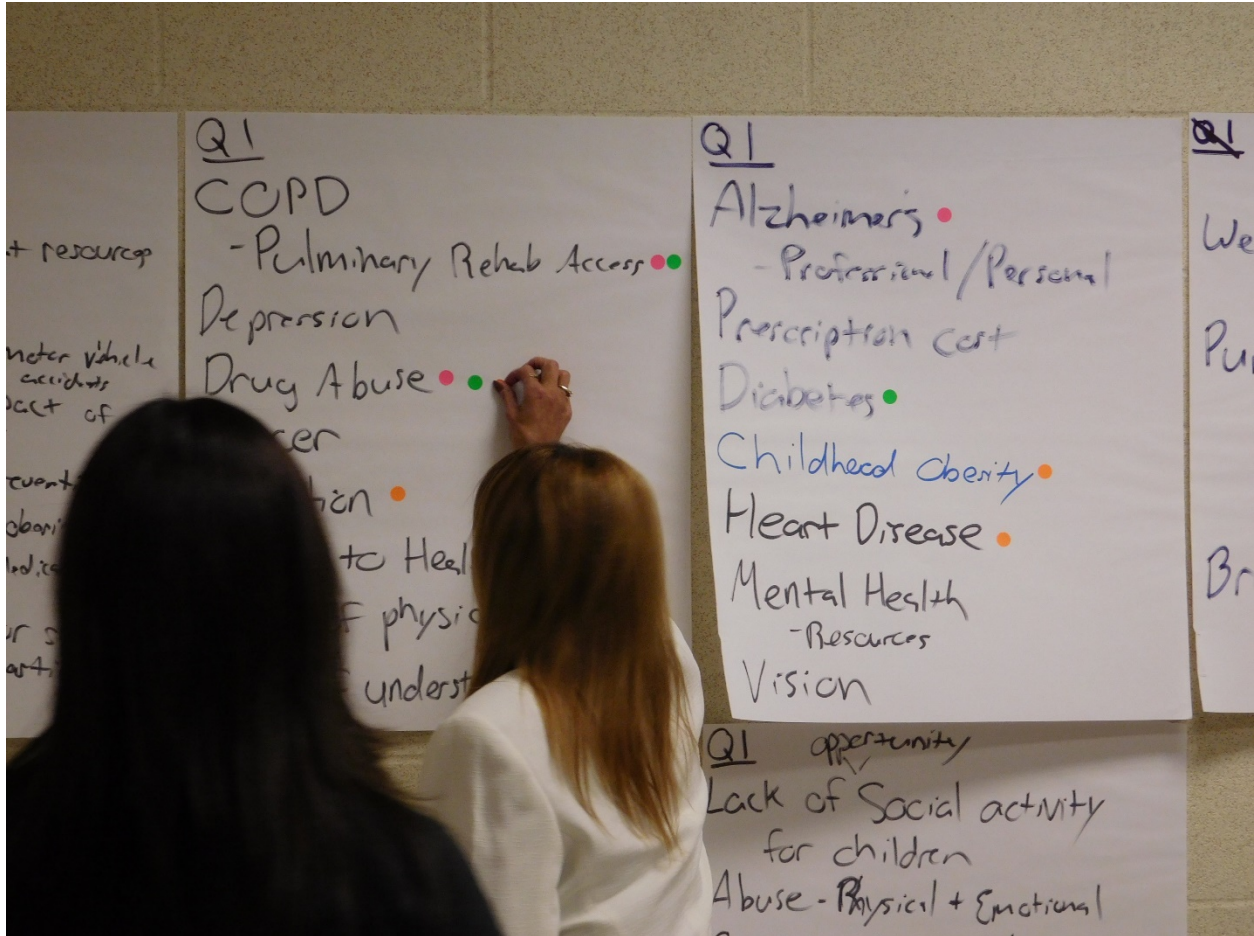 + resources
motor vehicle
accidents
of
Q1
COPD
- Pulminary Rehab Access
Depression
Drug Abuse
cer
tion
to Heal
physic
underst
Q1
Alzheimer's
- Professional/Personal
Prescription cost
Diabetes
Childhood Obesity
Heart Disease
Mental Health
- Resources
Vision
Q1 opportunity
Lack of Social activity
for children
Abuse - Physical + Emotional
Q1
We
Pu
Br